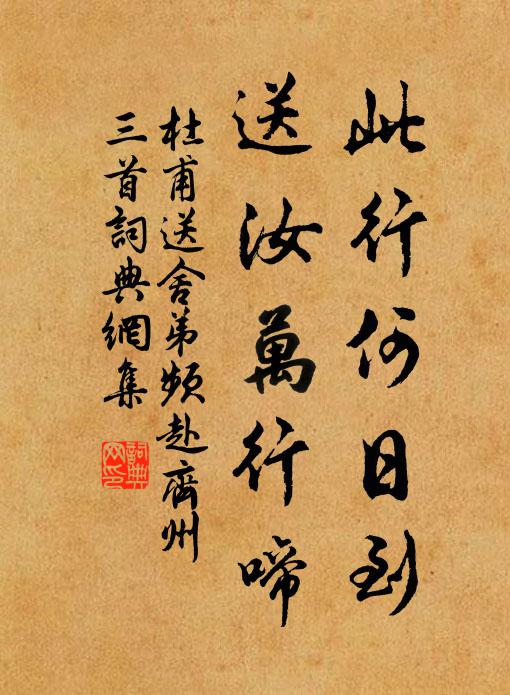 此行何日到
送汝萬行啼
杜甫送舍弟頻赴齊州
三首詞典網集
詞典
网印